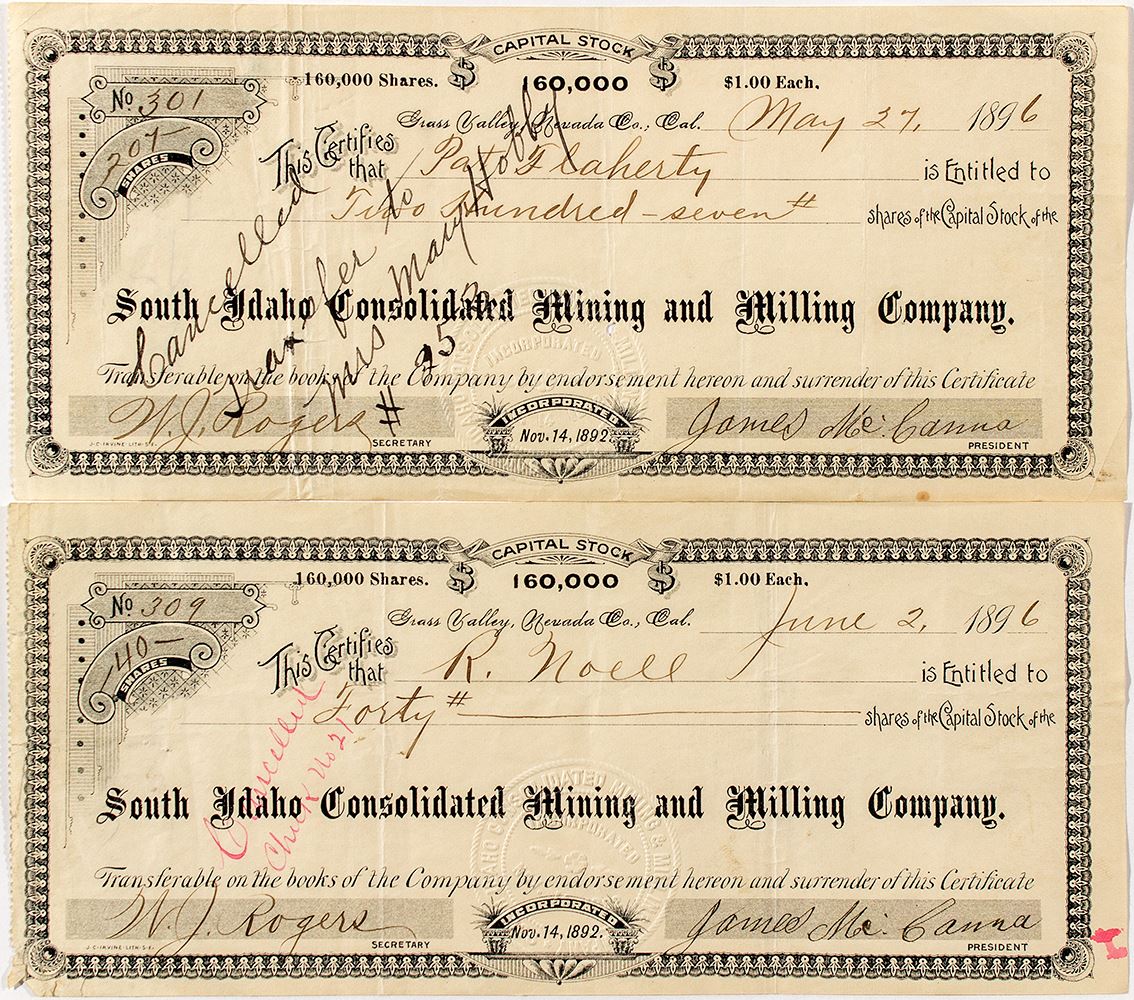 CAPITAL STOCK
160,000 Shares. $ 160,000 $ $1.00 Each.
No 301
Grass Valley, Nevada Co., Cal. May 27, 1896
207 SHARES
This Certifies that Pat Flaherty is Entitled to
Two Hundred-seven # shares of the Capital Stock of the
South Idaho Consolidated Mining and Milling Company.
Transferable on the books of the Company by endorsement hereon and surrender of this Certificate
Cancelled
fer to
Mrs Mary Hobby
W. J. Rogers SECRETARY
INCORPORATED
Nov. 14, 1892.
James Mc. Canna
PRESIDENT
J-C-IRVINE-LITH-S-F.
CAPITAL STOCK
160,000 Shares. $ 160,000 $ $1.00 Each.
No 309
Grass Valley, Nevada Co., Cal. June 2, 1896
-40- SHARES
This Certifies that R. Noell is Entitled to
Forty # shares of the Capital Stock of the
Cancelled
Check No 21
South Idaho Consolidated Mining and Milling Company.
Transferable on the books of the Company by endorsement hereon and surrender of this Certificate
W. J. Rogers SECRETARY
INCORPORATED
Nov. 14, 1892.
James Mc. Canna
PRESIDENT
J-C-IRVINE-LITH-S-F.